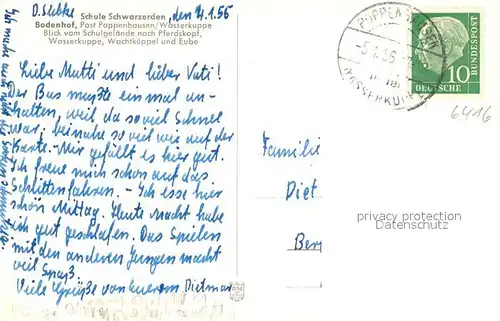 D. Liebke
Schule Schwarzerden
, den 4.1.56
Bodenhof, Post Poppenhausen/Wasserkuppe
Blick vom Schulgelände nach Pferdskopf,
Wasserkuppe, Wachtküppel und Eube
Liebe Mutti und lieber Vati!
Der Bus mußte einmal an-
halten, weil da so viel Schnee
war; beinahe so viel wie auf der
Karte. - Mir gefällt es hier gut.
Ich freue mich schon auf das
Schlittenfahren. - Ich esse hier
schön Mittag. Heute Nacht habe
ich gut geschlafen. Das Spielen
mit den anderen Jungen macht
viel Spaß.
Viele Grüße von Eurem Dietmar
POPPENHAUSEN
-5.1.56
WASSERKUPPE
10
DEUTSCHE
BUNDESPOST
6416
Familie
Diet
Ber
privacy protection
Datenschutz